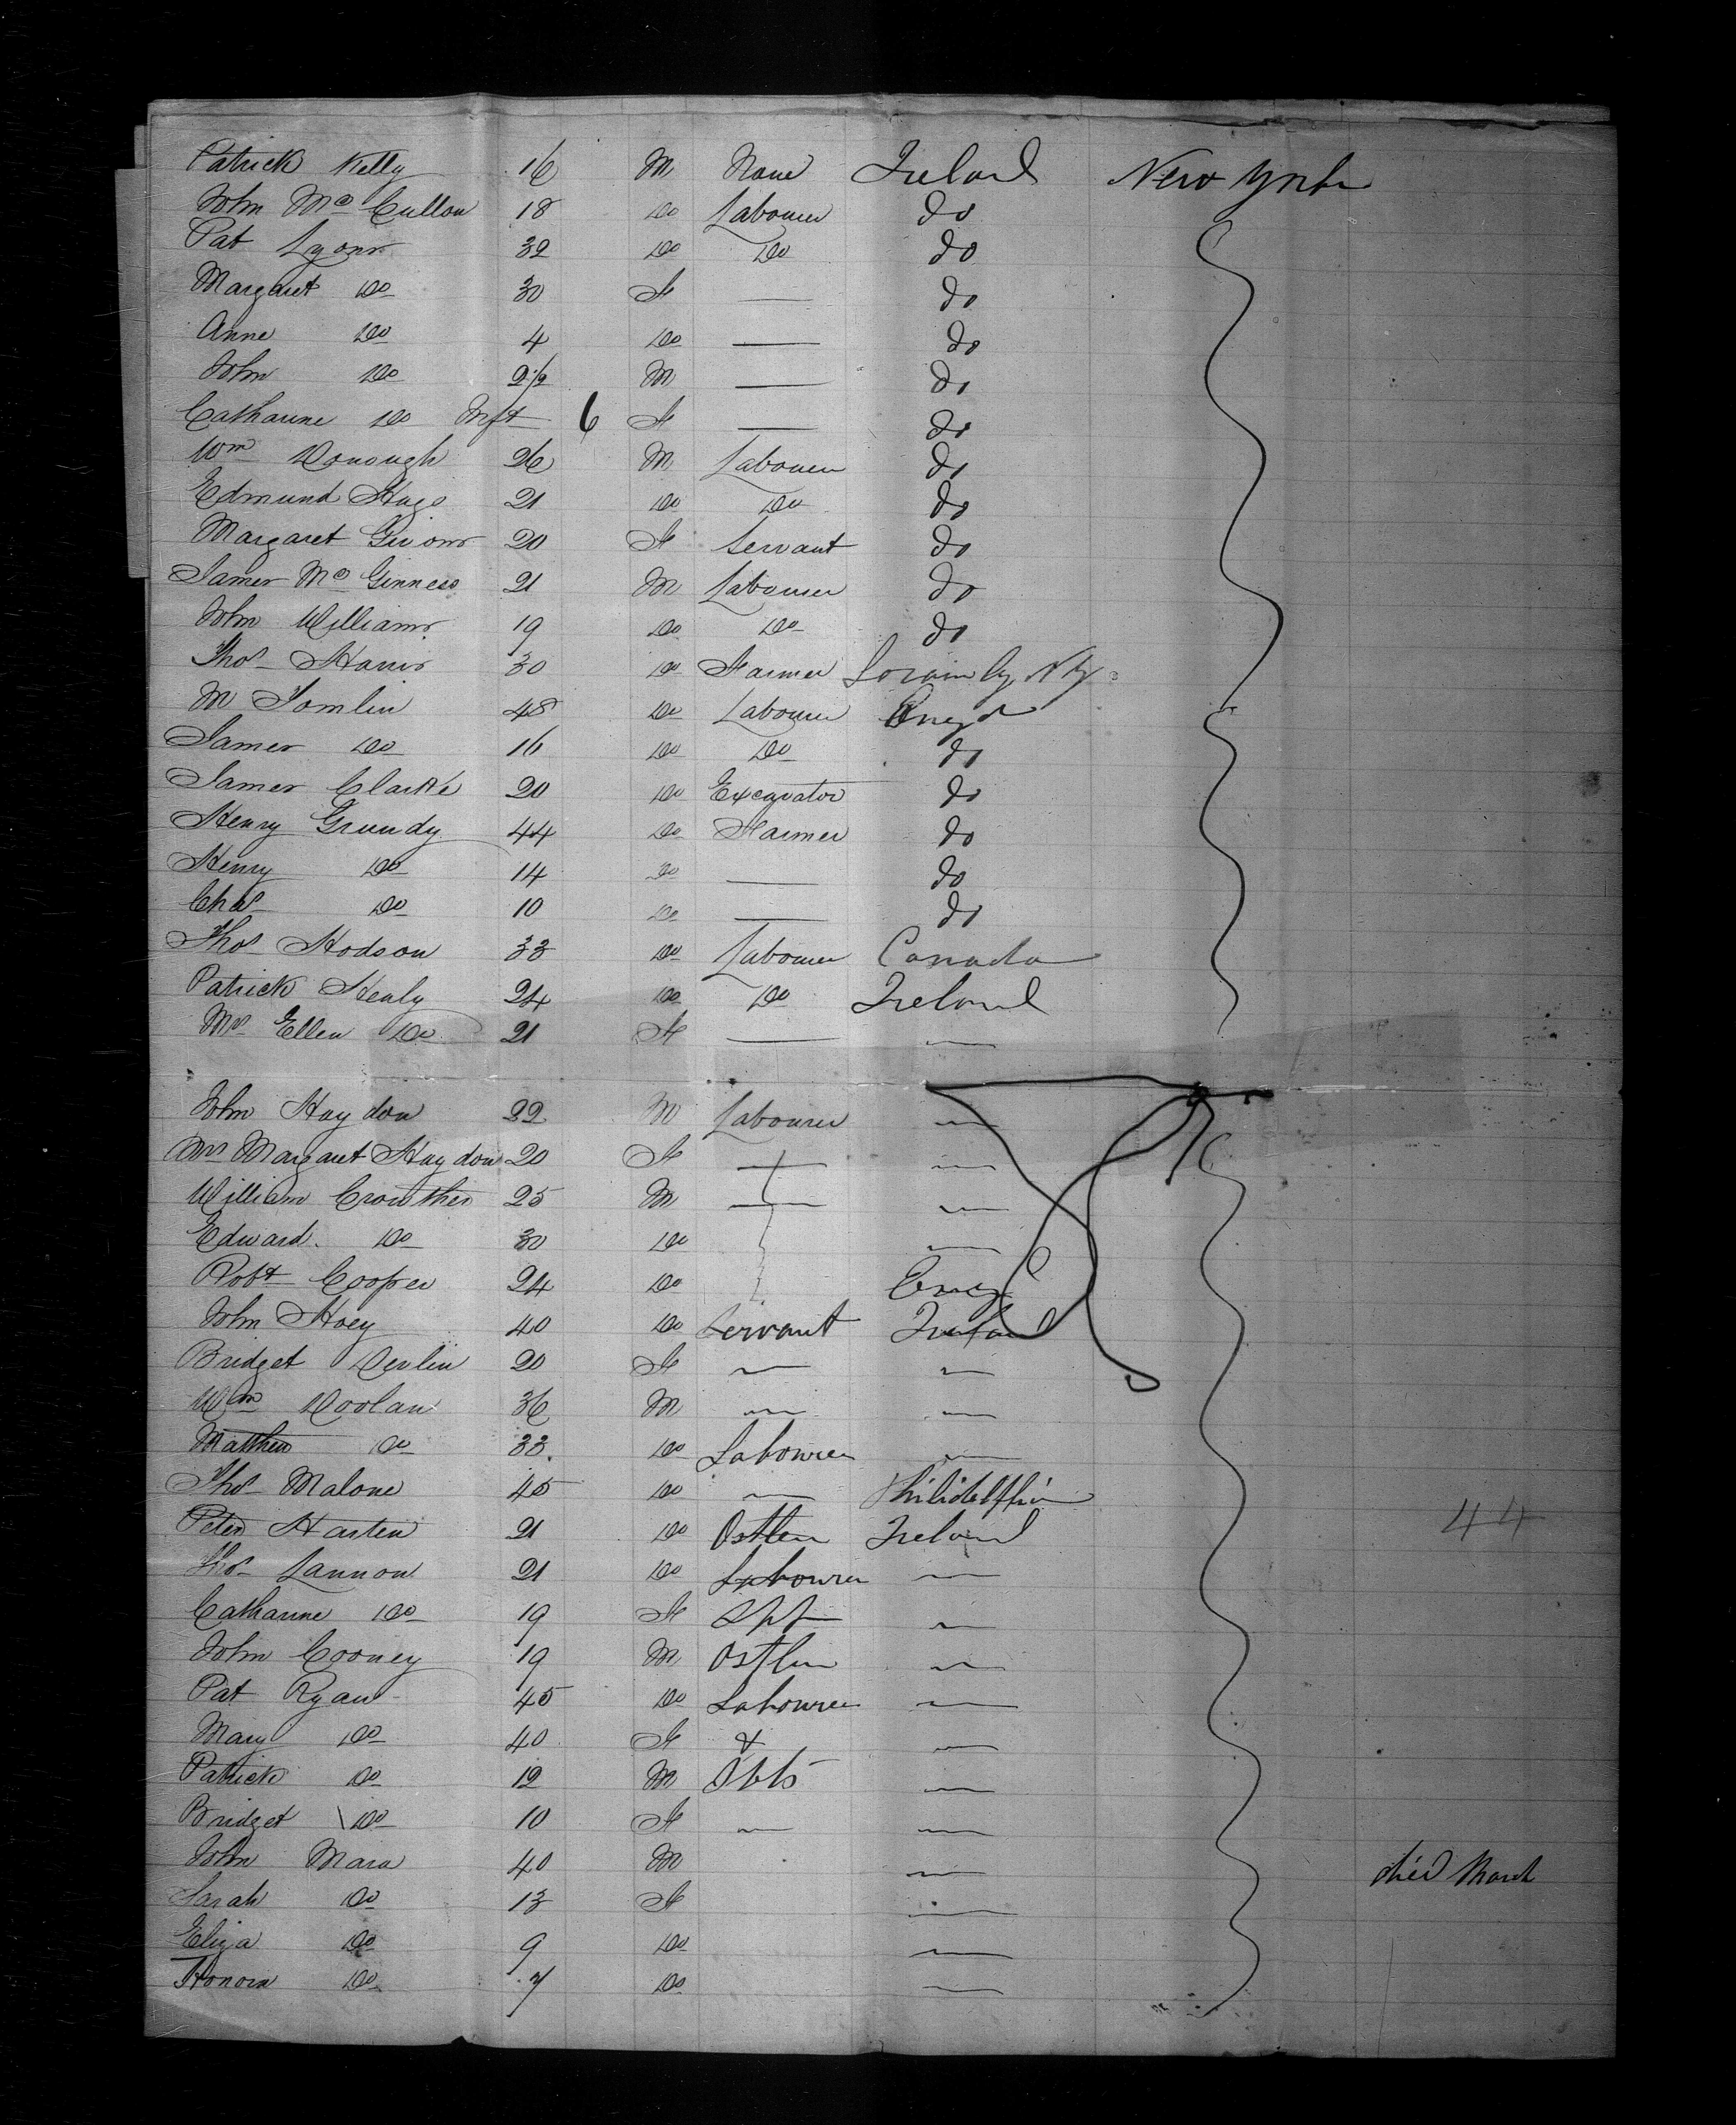 Patrick Kelly 16 M None Ireland New York
John Mc Cullon 18 Do Labourer do
Pat Lyons 32 Do Do do
Margaret Do 30 F — do
Anne Do 4 Do — do
John Do 2½ M — do
Catharine Do Inft 6 F — do
Wm Donough 26 M Labourer do
Edmund Hugo 21 Do Do do
Margaret 20 F Servant do
James Mc Ginness 21 M Labourer do
John Williams 19 Do Do do
Thos Harris 30 Do Farmer
M Tomlin 48 Do Labourer Engd
James Do 16 Do Do do
James Clarke 20 Do Excavator do
Henry Grundy 44 Do Farmer do
Henry Do 14 Do — do
Chas Do 10 Do — do
Thos Hodson 33 Do Labourer Canada
Patrick Henly 24 Do Do Ireland
Mrs Ellen Do 21 F — —
John Haydon 22 M Labourer —
Mrs Margaret Haydon 20 F — —
William Crowther 25 M — —
Edward Do 30 Do —
Robt Cooper 24 Do Engd
John Hoey 40 Do Servant Ireland
Bridget Devlin 20 F — —
Wm Doolan 36 M — —
Matthew Do 33 Do Labourer —
Thos Malone 45 Do — Philidelphia
Peter Harten 21 Do Ostler Ireland 44
Thos Lannon 21 Do Labourer —
Catharine Do 19 F —
John Cooney 19 M Ostler —
Pat Ryan 45 Do Labourer —
Mary Do 40 F —
Patrick Do 12 M —
Bridget Do 10 F — —
John Mara 40 M — died March
Sarah Do 13 F —
Eliza Do 9 Do —
Honora Do 7 Do —